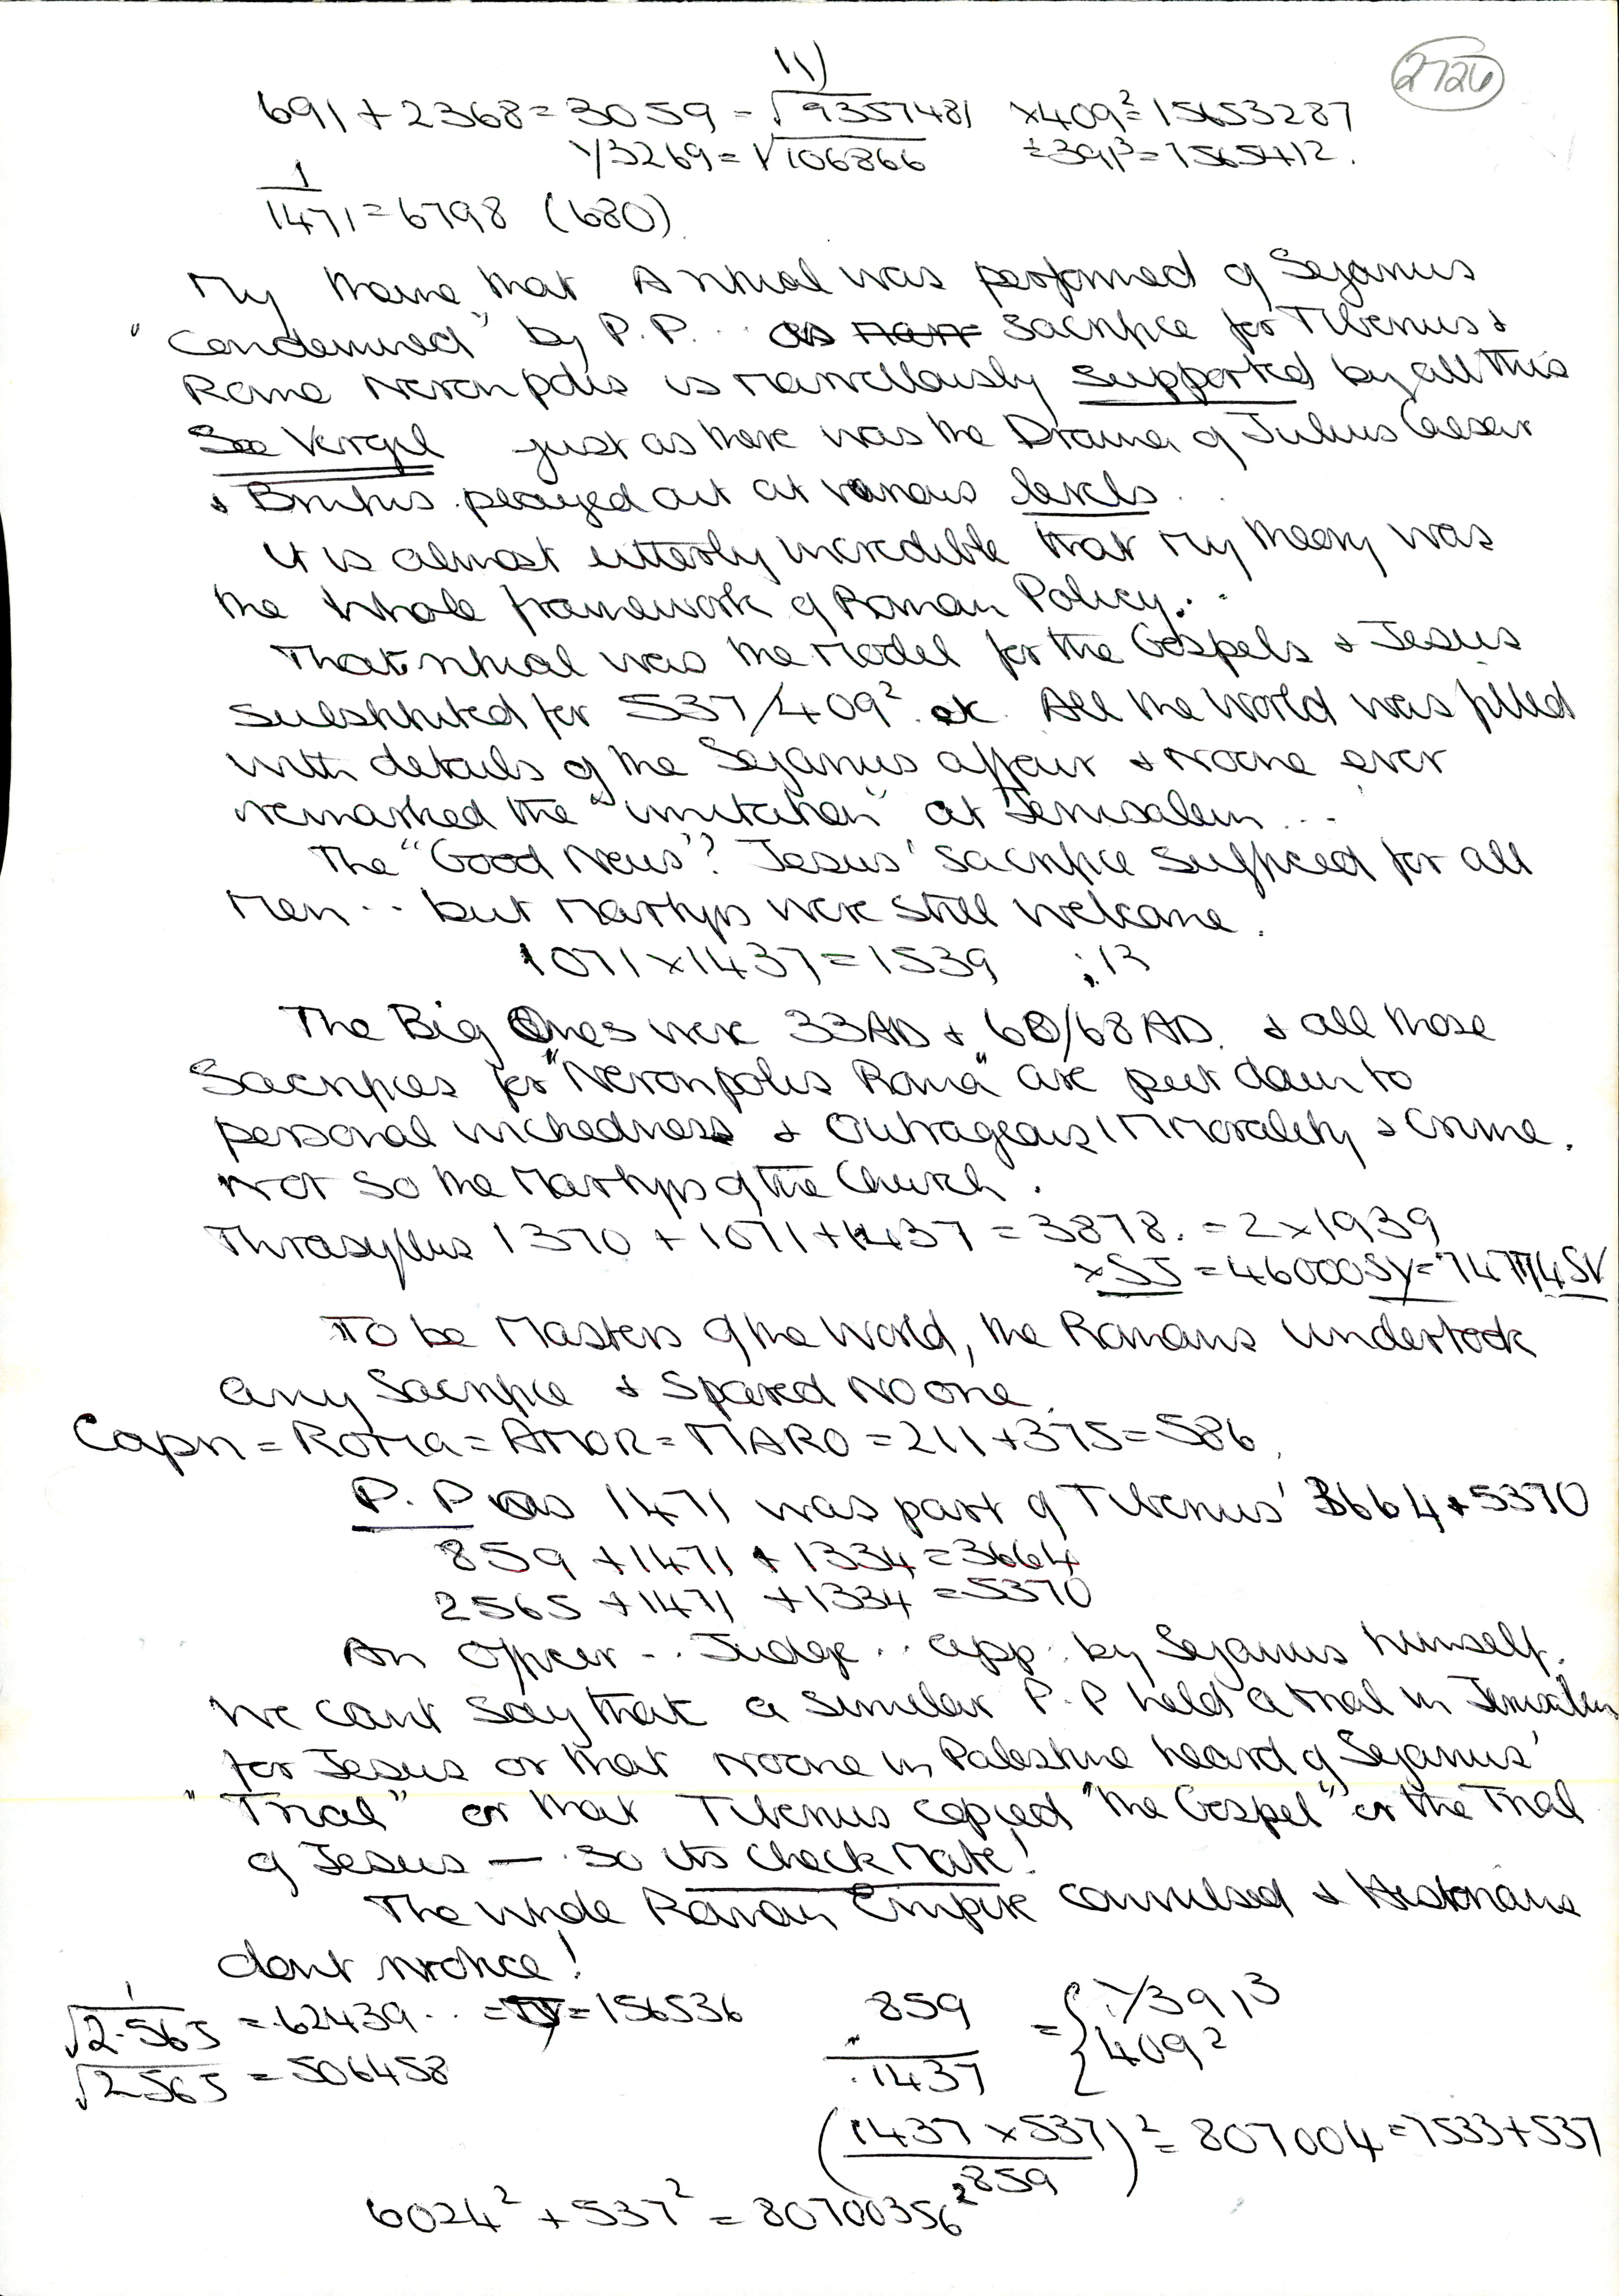 11)
2726
691 + 2368 = 3059 = √9357481 × 409² = 15653287
1/3269 = √106866 ÷ 391³ = 1565412.
1/1471 = 6798 (680)
My theme that A ritual was performed of Sejanus
"Condemned" by P.P. .. as Sacrifice for Tiberius &
Rome Neronpolis is Marvellously supported by all this
See Vergil just as there was the Drama of Julius Caesar
& Brutus played out at various levels..
It is almost utterly incredible that My theory was
the whole framework of Roman Policy...
That ritual was the Model for the Gospels & Jesus
substituted for 537/409². etc. All the World was filled
with details of the Sejanus affair & Noone ever
remarked the "imitation" at Jerusalem...
The "Good News"? Jesus' Sacrifice sufficed for all
Men .. but Martyrs were still welcome.
1071 × 1437 = 1539 ; 13
The Big Ones were 33AD & 60/68 AD. & all those
Sacrifices for "Neronpolis Roma" are put down to
personal wickedness & Outrageous IMMorality & Crime.
Not so the Martyrs of the Church.
Thrasyllus 1370 + 1071 + 1437 = 3878. = 2 × 1939
× SJ = 46000 SY = 747π/4 SV
To be Masters of the World, the Romans undertook
any Sacrifice & Spared No one.
Capri = ROMa = AMOR = MARO = 211 + 375 = 586.
P.P as 1471 was part of Tiberius' 3664 & 5370
859 + 1471 + 1334 = 3664
2565 + 1471 + 1334 = 5370
An Officer .. Judge .. app. by Sejanus himself.
We cant say that a similar P.P held a trial in Jerusalem
for Jesus or that Noone in Palestine heard of Sejanus'
"Trial" or that Tiberius copied "the Gospel" or the Trial
of Jesus — So its Check Mate!
The whole Roman Empire convulsed & Historians
dont notice!
1/√2.565 = .62439.. = = 156536
√2565 = 506458
859/.1437 = { 1/391³
4092
(1437 × 537 / 859)² = 807004 = 7533 + 537
6024² + 537² = 80700356²